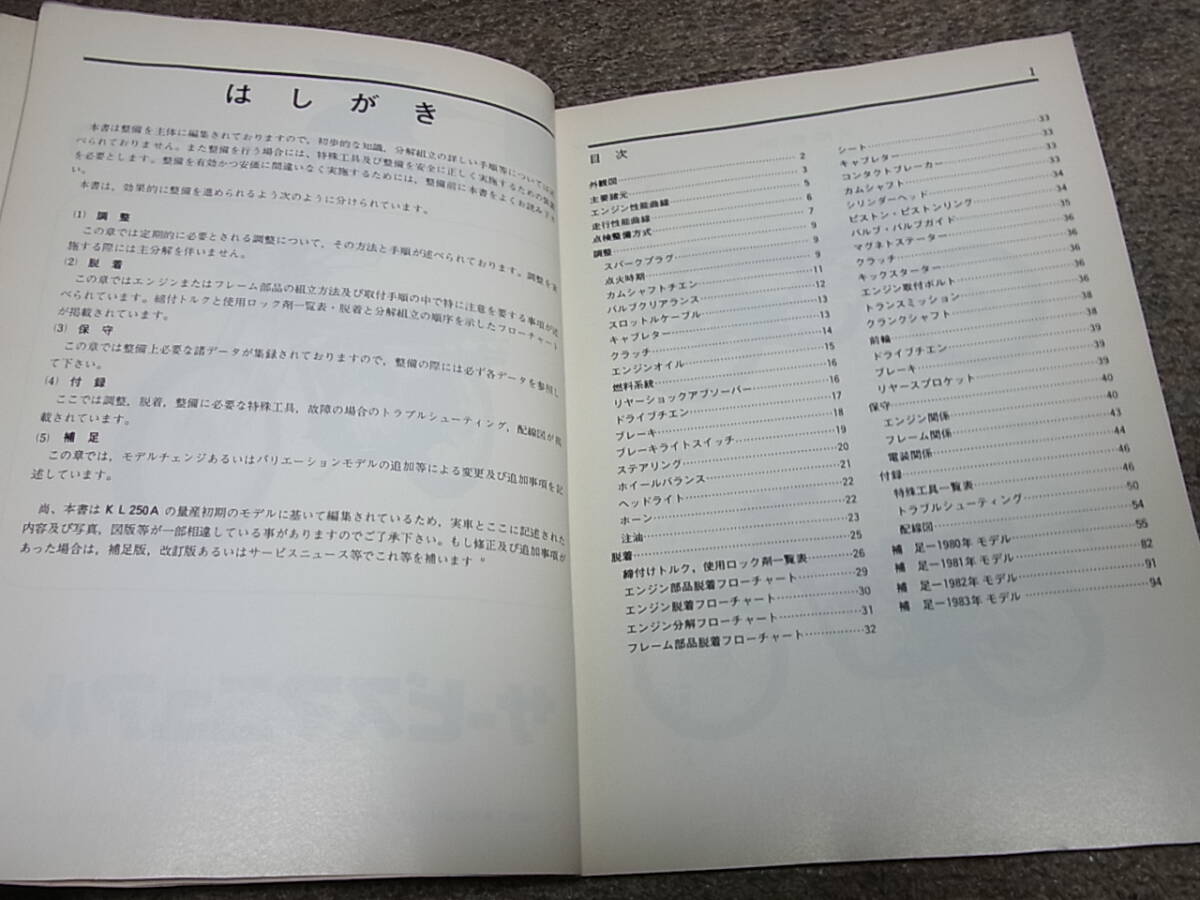 はしがき
本書は整備を主体に編集されておりますので，初歩的な知識，分解組立の詳しい手順等については述
べられておりません。また整備を行う場合には，特殊工具及び整備を安全に正しく実施するための装置
を必要とします。整備を有効かつ安価に間違いなく実施するためには，整備前に本書をよくお読み下さ
い。
本書は，効果的に整備を進められるよう次のように分けられています。
(1) 調 整
この章では定期的に必要とされる調整について，その方法と手順が述べられております。調整を実
施する際には主分解を伴いません。
(2) 脱 着
この章ではエンジンまたはフレーム部品の組立方法及び取付手順の中で特に注意を要する事項が述
べられています。締付トルクと使用ロック剤一覧表・脱着と分解組立の順序を示したフローチャート
が掲載されています。
(3) 保 守
この章では整備上必要な諸データが集録されておりますので，整備の際には必ず各データを参照し
て下さい。
(4) 付 録
ここでは調整，脱着，整備に必要な特殊工具，故障の場合のトラブルシューティング，配線図が掲
載されています。
(5) 補 足
この章では，モデルチェンジあるいはバリエーションモデルの追加等による変更及び追加事項を記
述しています。
尚，本書はＫＬ250Ａの量産初期のモデルに基いて編集されているため，実車とここに記述された
内容及び写真，図版等が一部相違している事がありますのでご了承下さい。もし修正及び追加事項が
あった場合は，補足版，改訂版あるいはサービスニュース等でこれ等を補います。
1
目 次
外観図……2
主要諸元……3
エンジン性能曲線……5
走行性能曲線……6
点検整備方式……7
調整……9
スパークプラグ……9
点火時期……9
カムシャフトチエン……11
バルブクリアランス……12
スロットルケーブル……13
キャブレター……13
クラッチ……14
エンジンオイル……15
燃料系統……16
リヤーショックアブソーバー……16
ドライブチエン……17
ブレーキ……18
ブレーキライトスイッチ……19
ステアリング……20
ホイールバランス……21
ヘッドライト……22
ホーン……22
注油……23
脱着……25
締付けトルク，使用ロック剤一覧表……26
エンジン部品脱着フローチャート……29
エンジン脱着フローチャート……30
エンジン分解フローチャート……31
フレーム部品脱着フローチャート……32
シート……33
キャブレター……33
コンタクトブレーカー……33
カムシャフト……33
シリンダーヘッド……34
ピストン・ピストンリング……34
バルブ・バルブガイド……35
マグネトステーター……36
クラッチ……36
キックスターター……36
エンジン取付ボルト……36
トランスミッション……36
クランクシャフト……38
前輪……38
ドライブチエン……39
ブレーキ……39
リヤースプロケット……39
保守……40
エンジン関係……40
フレーム関係……43
電装関係……44
付録……46
特殊工具一覧表……46
トラブルシューティング……50
配線図……54
補 足ー1980年 モデル……55
補 足ー1981年 モデル……82
補 足ー1982年 モデル……91
補 足ー1983年 モデル……94